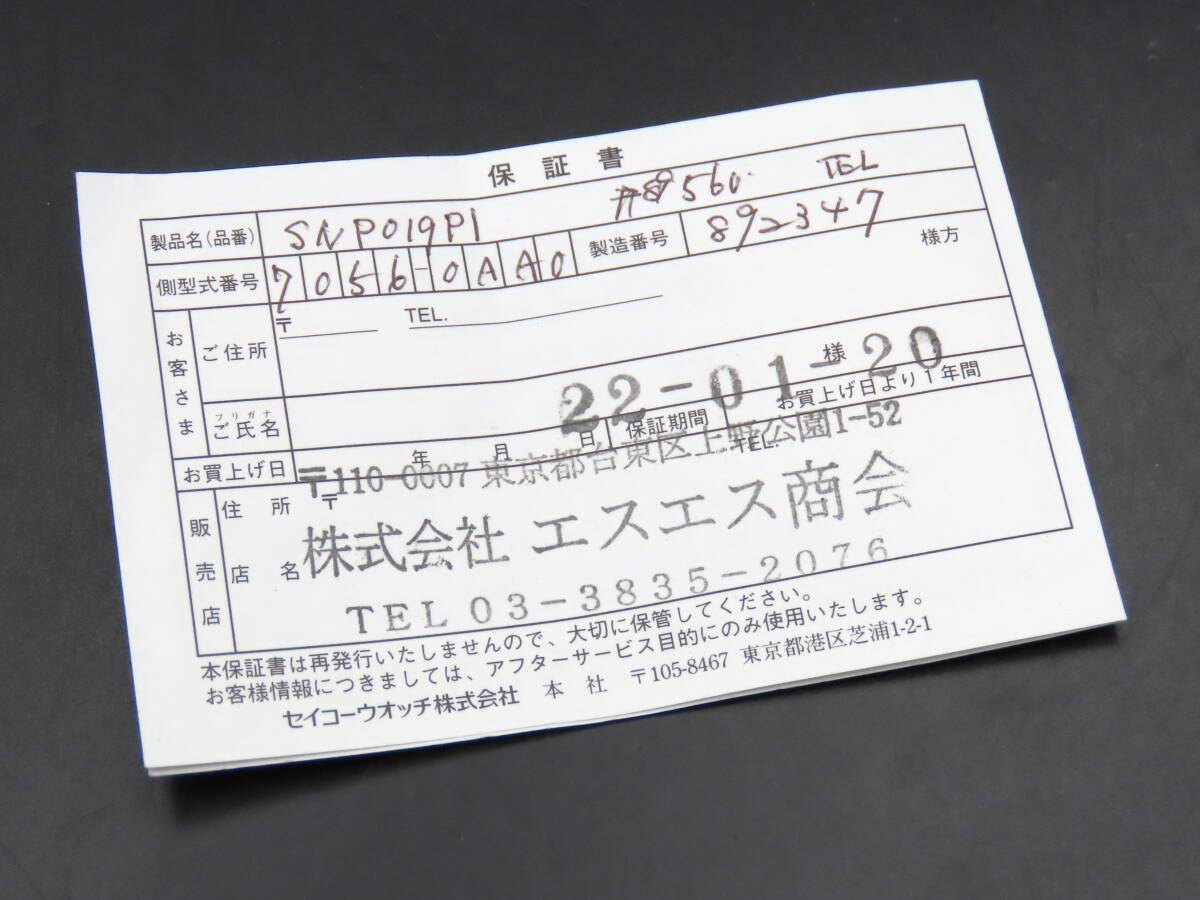 保証書
製品名(品番) SNP019P1 560. TEL
側型式番号 7056-0AA0 製造番号 892347
お客さま ご住所 〒 TEL. 様方
フリガナ
ご氏名 様
22-01-20
お買上げ日 年 月 日 保証期間 お買上げ日より1年間
販売店 住所 〒 TEL.
〒110-0007 東京都台東区上野公園1-52
店名
株式会社 エスエス商会
TEL 03-3835-2076
本保証書は再発行いたしませんので、大切に保管してください。
お客様情報につきましては、アフターサービス目的にのみ使用いたします。
セイコーウオッチ株式会社 本社 〒105-8467 東京都港区芝浦1-2-1